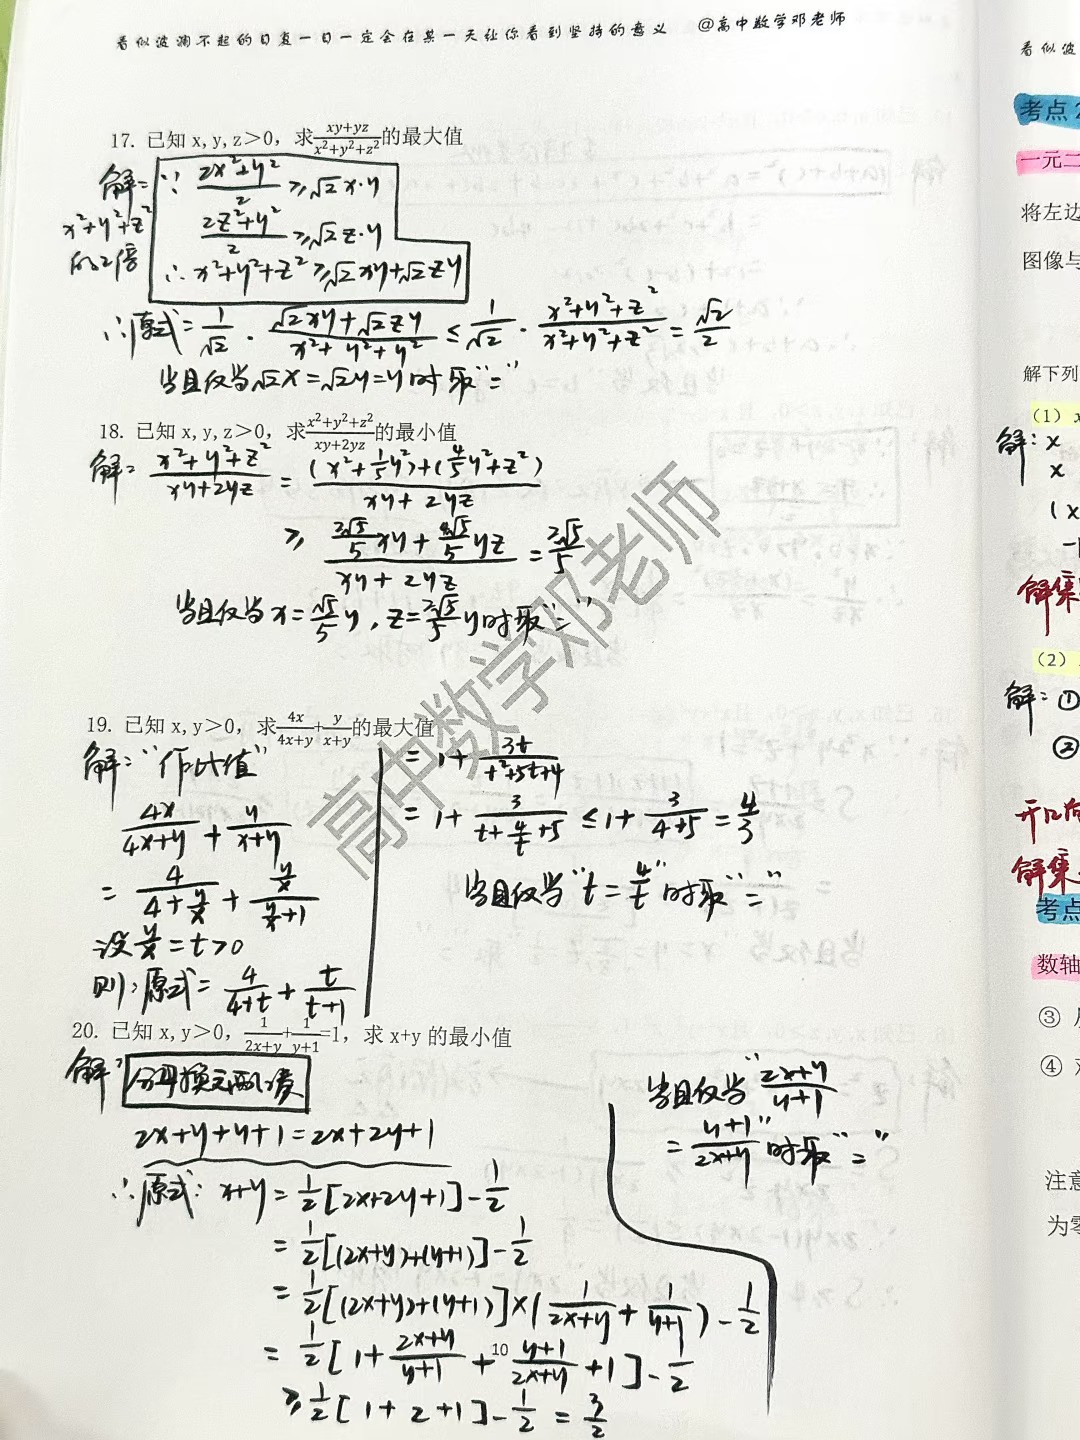 看似波澜不起的日复一日一定会在某一天让你看到坚持的意义 @高中数学邓老师
17. 已知 x,y,z＞0，求(xy+yz)/(x²+y²+z²)的最大值
解: ∵ (2x²+y²)/2 ≥ √2x·y
x²+y²+z² (2z²+y²)/2 ≥ √2z·y
的2倍 ∴ x²+y²+z² ≥ √2xy+√2zy
∴原式 = 1/√2 · (√2xy+√2zy)/(x²+y²+y²) ≤ 1/√2 · (x²+y²+z²)/(x²+y²+z²) = √2/2
当且仅当√2x=√2y=y时取“=”
18. 已知 x,y,z＞0，求(x²+y²+z²)/(xy+2yz)的最小值
解: (x²+y²+z²)/(xy+2yz) = ((x²+1/5y²)+(4/5y²+z²))/(xy+2yz)
≥ (2√5/5xy+4√5/5yz)/(xy+2yz) = 2√5/5
当且仅当 x=√5/5y, z=2√5/5y时取“=”
高中数学邓老师
19. 已知 x,y＞0，求4x/(4x+y)+y/(x+y)的最大值
解: “作比值”
4x/(4x+y) + y/(x+y)
= 4/(4+y/x) + (y/x)/(y/x+1)
设y/x=t>0
则:原式= 4/(4+t) + t/(t+1)
= 1+ 3t/(t²+5t+4)
= 1+ 3/(t+4/t+5) ≤ 1+ 3/(4+5) = 4/3
当且仅当“t=4/t”时取“=”
20. 已知 x,y＞0，1/(2x+y)+1/(y+1)=1，求 x+y 的最小值
解: 分母换元配凑
2x+y+y+1=2x+2y+1
∴原式: x+y = 1/2[2x+2y+1]-1/2
= 1/2[(2x+y)+(y+1)]-1/2
= 1/2[(2x+y)+(y+1)]×(1/(2x+y)+1/(y+1))-1/2
= 1/2[1+(2x+y)/(y+1)+(y+1)/(2x+y)+1]-1/2
≥ 1/2[1+2+1]-1/2 = 3/2
当且仅当“(2x+y)/(y+1)
=(y+1)/(2x+y)”时取“=”
10
看似波
考点2
一元二
将左边
图像与
解下列
（1）x
解: x
x
(x
解集
（2）
解: ①
②
开口向
解集
考点
数轴
③ 从
④ 对
注意
为零